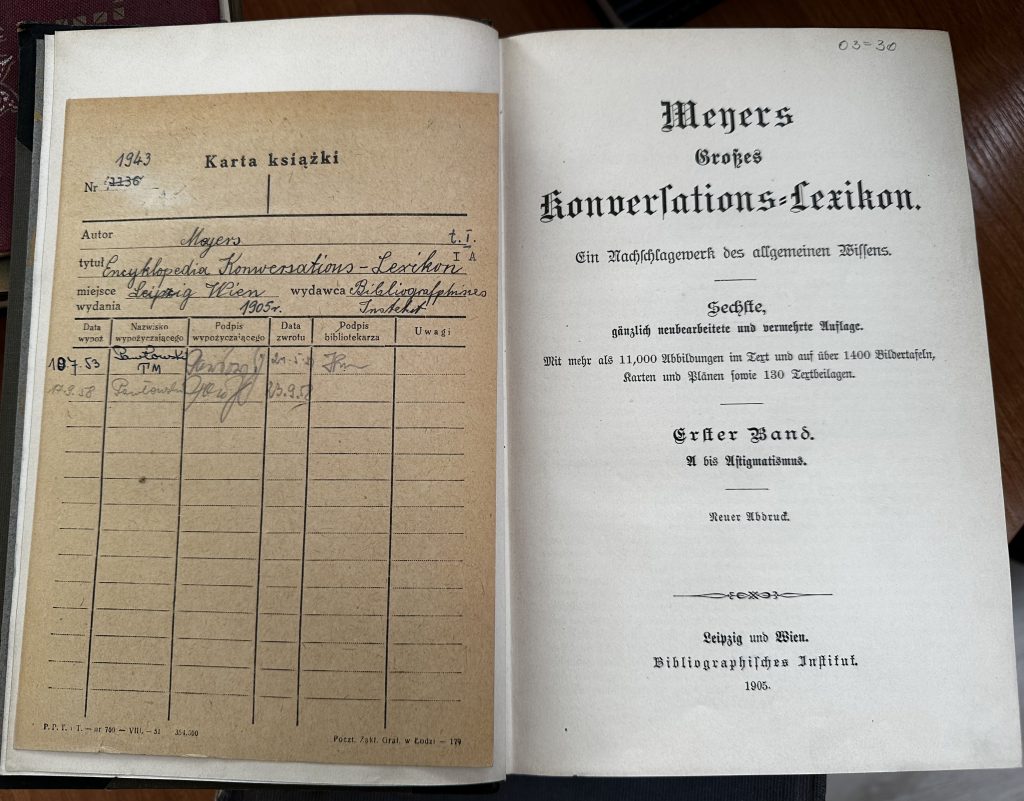 1943
Karta książki
Nr 1136
Autor Mejers t. I.
tytuł Encyklopedia Konwersations-Lexikon I A
miejsce wydania Leipzig Wien 1905r. wydawca Bibliografphines Instetut
Data wypoż. Nazwisko wypożyczającego Podpis wypożyczającego Data zwrotu Podpis bibliotekarza Uwagi
7.53 Pawłowski TM
17.9.58 Pawłowski 23.9.58
P. P. T. i T. — nr 700 — VIII. — 51 354.500
Poczt. Zakł. Graf. w Łodzi — 179
03=30
Meyers
Großes
Konversations-Lexikon.
Ein Nachschlagewerk des allgemeinen Wissens.
Sechste,
gänzlich neubearbeitete und vermehrte Auflage.
Mit mehr als 11,000 Abbildungen im Text und auf über 1400 Bildertafeln,
Karten und Plänen sowie 130 Textbeilagen.
Erster Band.
A bis Astigmatismus.
Neuer Abdruck.
Leipzig und Wien.
Bibliographisches Institut.
1905.